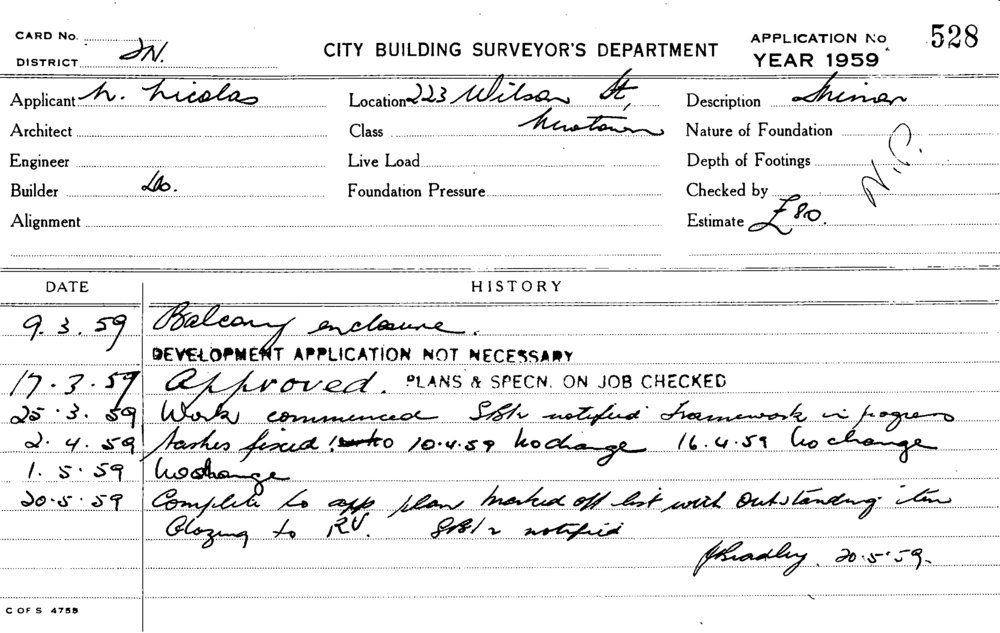 CARD No.
DISTRICT
CITY BUILDING SURVEYOR'S DEPARTMENT
APPLICATION No 528
YEAR 1959
Applicant N. Nicolas
Location 223 Wilson St,
Newtown
Description Minor
Architect
Class
Nature of Foundation
Engineer
Live Load
Depth of Footings
N.P.
Builder Do.
Foundation Pressure
Checked by
Alignment
Estimate £80.
DATE HISTORY
9.3.59 Balcony enclosure.
DEVELOPMENT APPLICATION NOT NECESSARY
17.3.59 Approved. PLANS & SPECN. ON JOB CHECKED
25.3.59 Work commenced notified Framework in progress
2.4.59 Sashes fixed 10.4.59 No change 16.4.59 No change
1.5.59 No change
20.5.59 Complete to app plan marked off list with outstanding item
Glazing to RV. notified
J Bradley. 20.5.59.
C OF S 4755